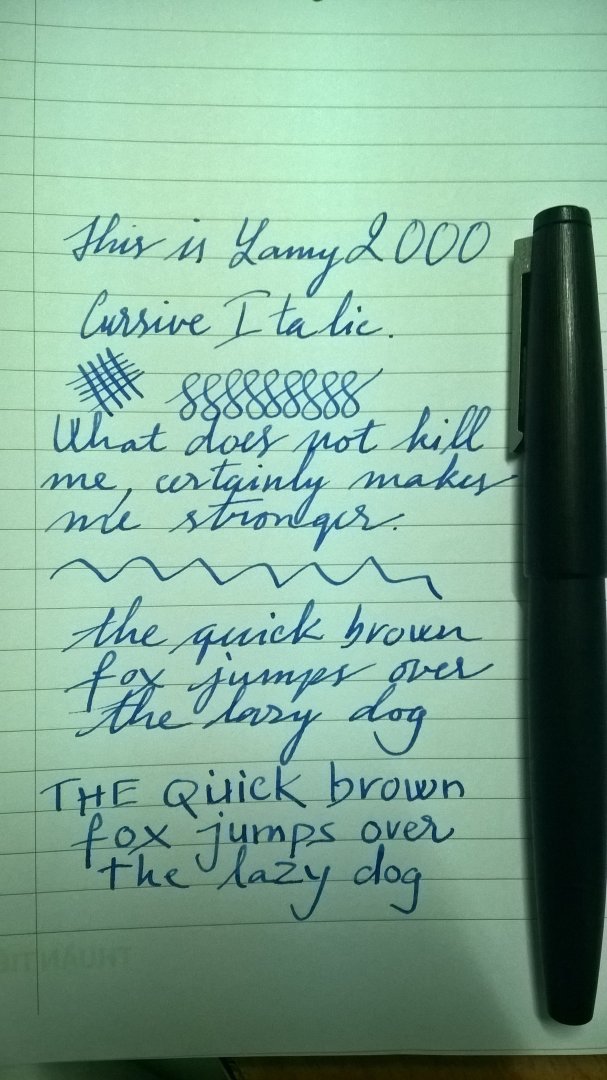 This is Lamy 2000
Cursive Italic.
What does not kill
me, certainly makes
me stronger.
the quick brown
fox jumps over
the lazy dog
THE Quick brown
fox jumps over
the lazy dog